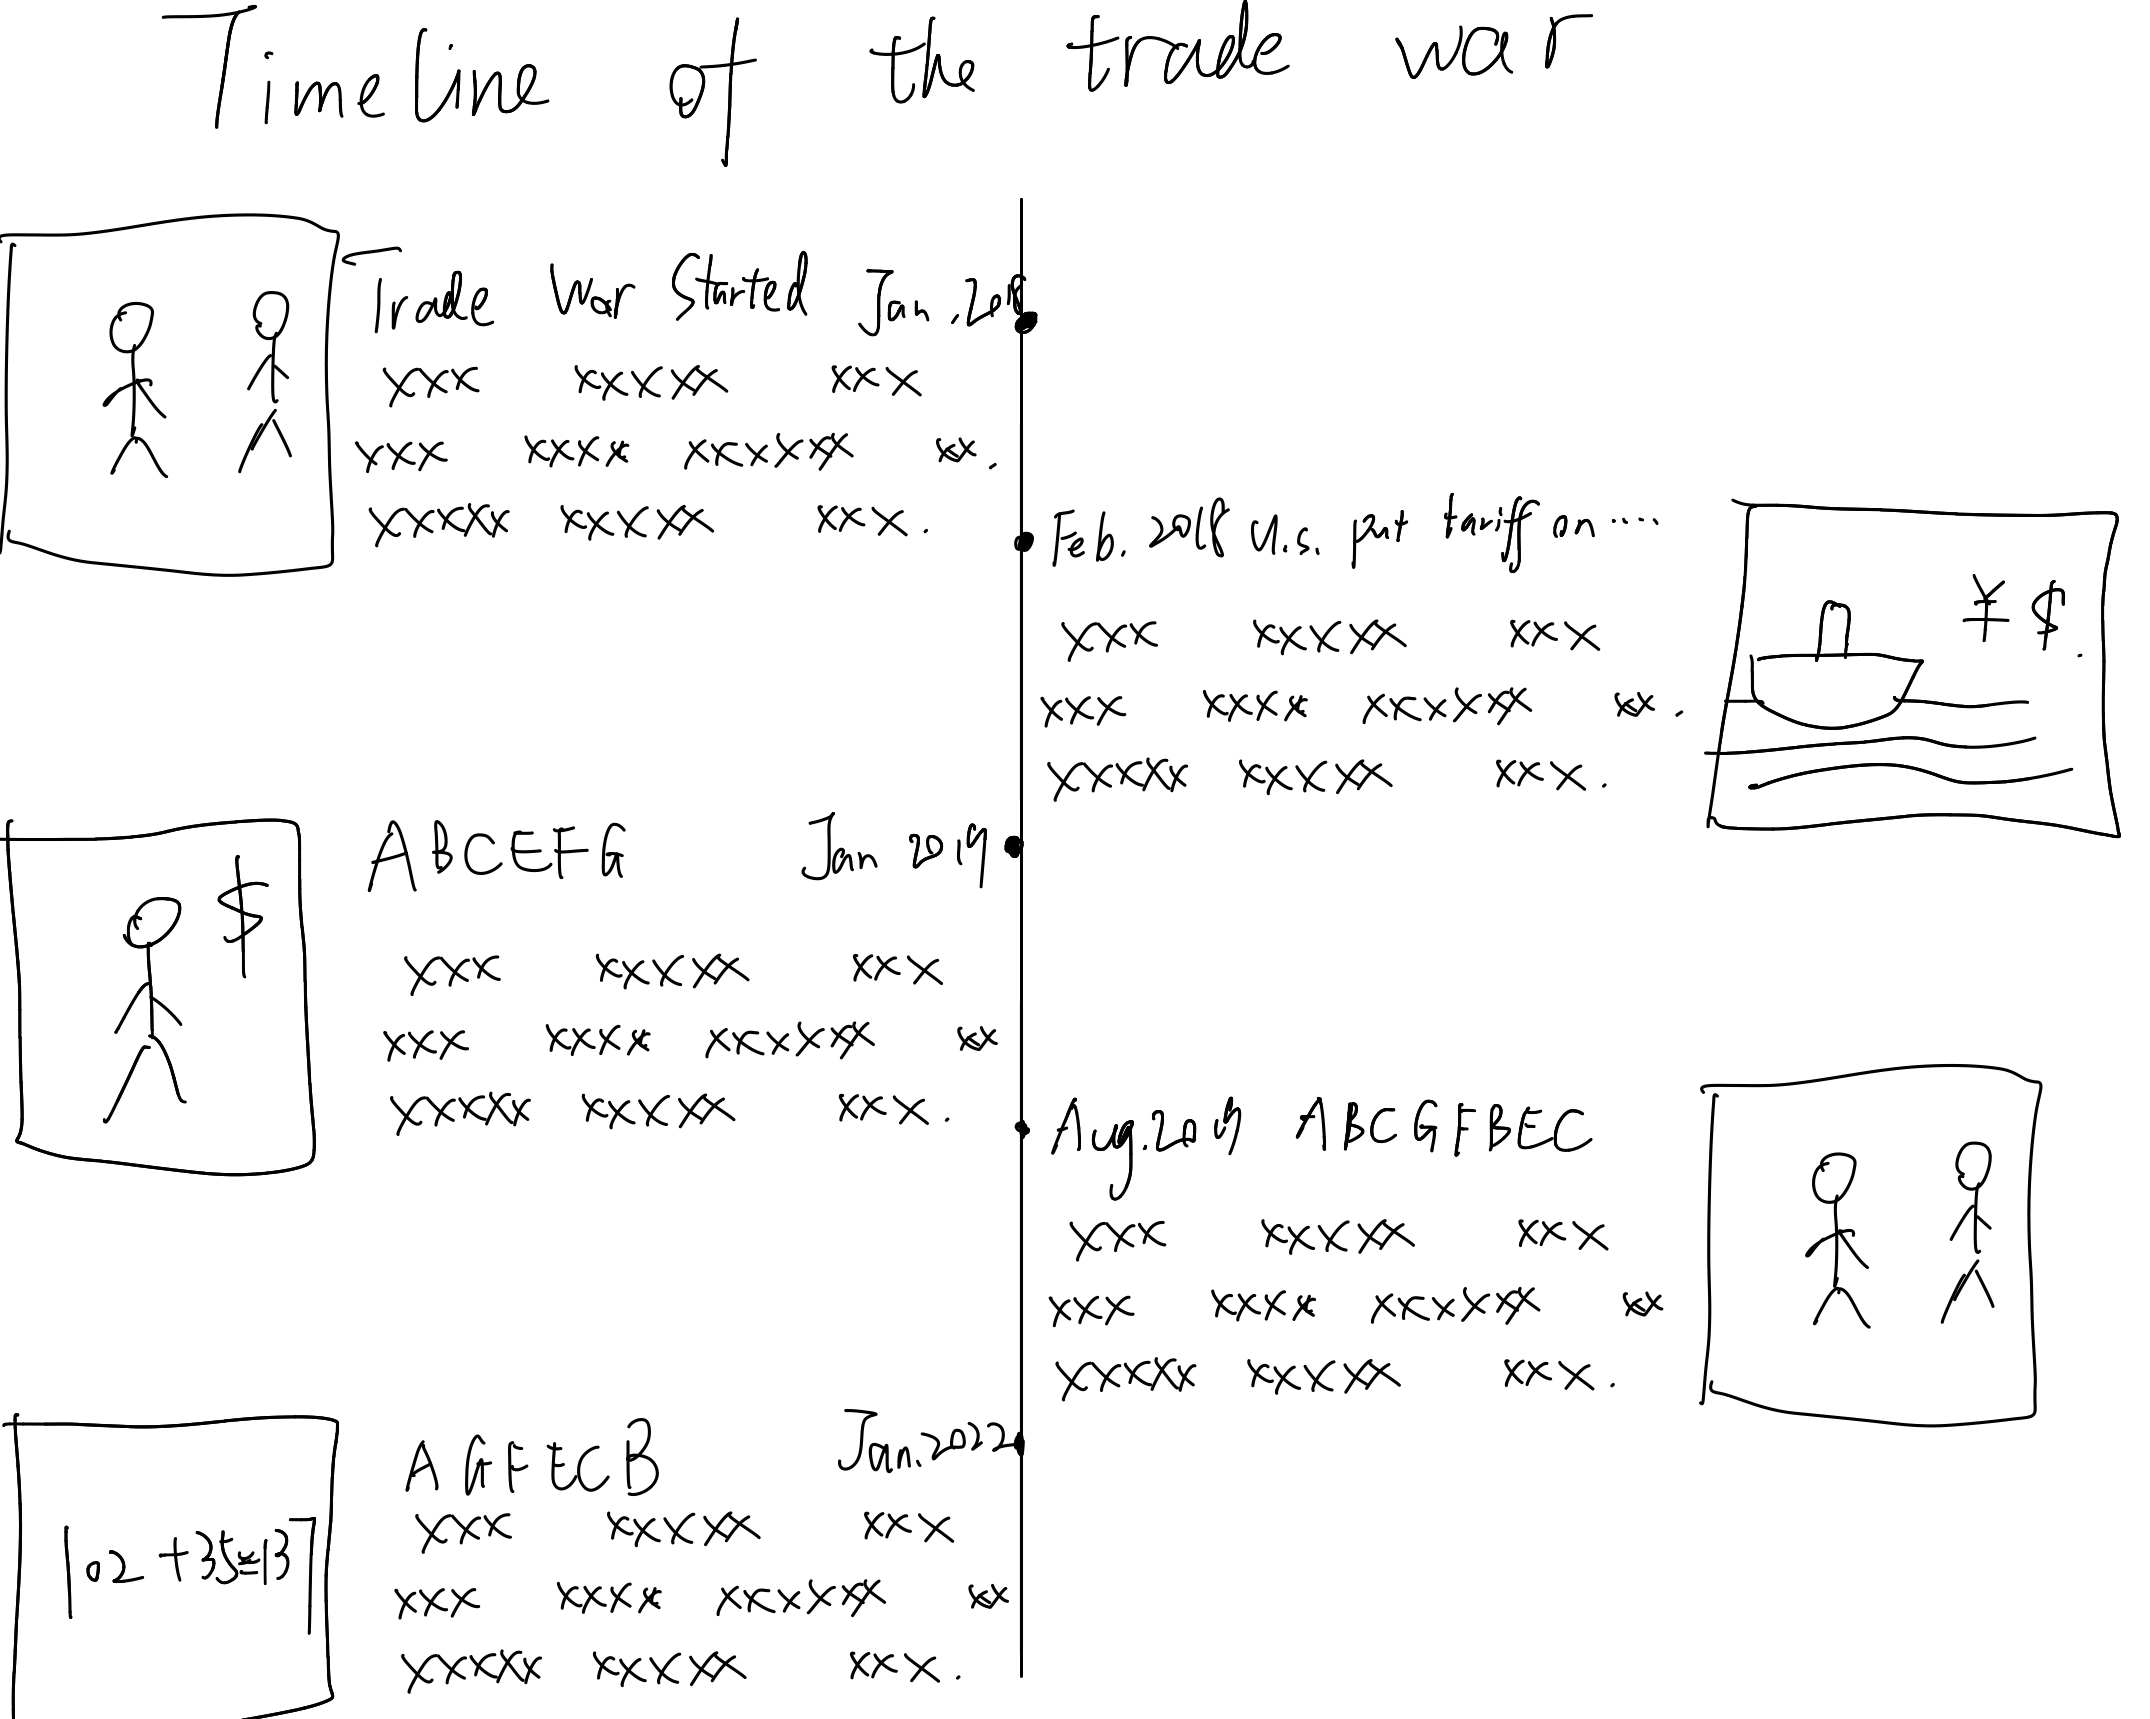 Timeline of the trade war
Trade War Started Jan. 2018
xxx xxxxxx xxx
xxx xxxx xxxxxxx xx.
xxxxxx xxxxxx xxx.
Feb. 2018 U.S. put tariff on ......
xxx xxxxxx xxx
xxx xxxx xxxxxxx xx.
xxxxxx xxxxxx xxx.
¥ $
ABCEFG Jan 2019
$
xxx xxxxxx xxx
xxx xxxx xxxxxxx xx
xxxxxx xxxxxx xxx.
Aug. 2019 ABCGFBEC
xxx xxxxxx xxx
xxx xxxx xxxxxxx xx
xxxxxx xxxxxx xxx.
AGFECB Jan. 2022
xxx xxxxxx xxx
xxx xxxx xxxxxxx xx
xxxxxx xxxxxx xxx.
02+35=13